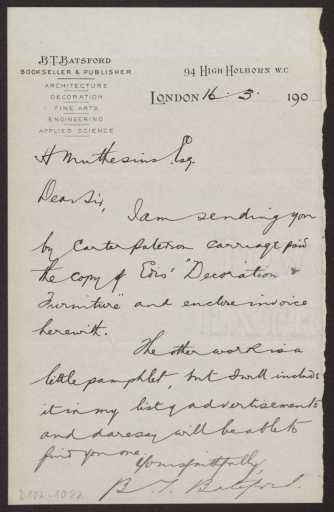 B.T. BATSFORD
BOOKSELLER & PUBLISHER
ARCHITECTURE
DECORATION
FINE ARTS
ENGINEERING
APPLIED SCIENCE
94 HIGH HOLBORN W.C.
LONDON 16. 3. 190
H Muthesius Esq
Dear Sir,
I am sending you
by Carter Paterson carriage paid
the copy of "Decoration &
Furniture" and enclose invoice
herewith.
The other work is a
little pamphlet, but I will include
it in my list of advertisements
and daresay will be able to
find you one
Yours faithfully,
B. T. Batsford.